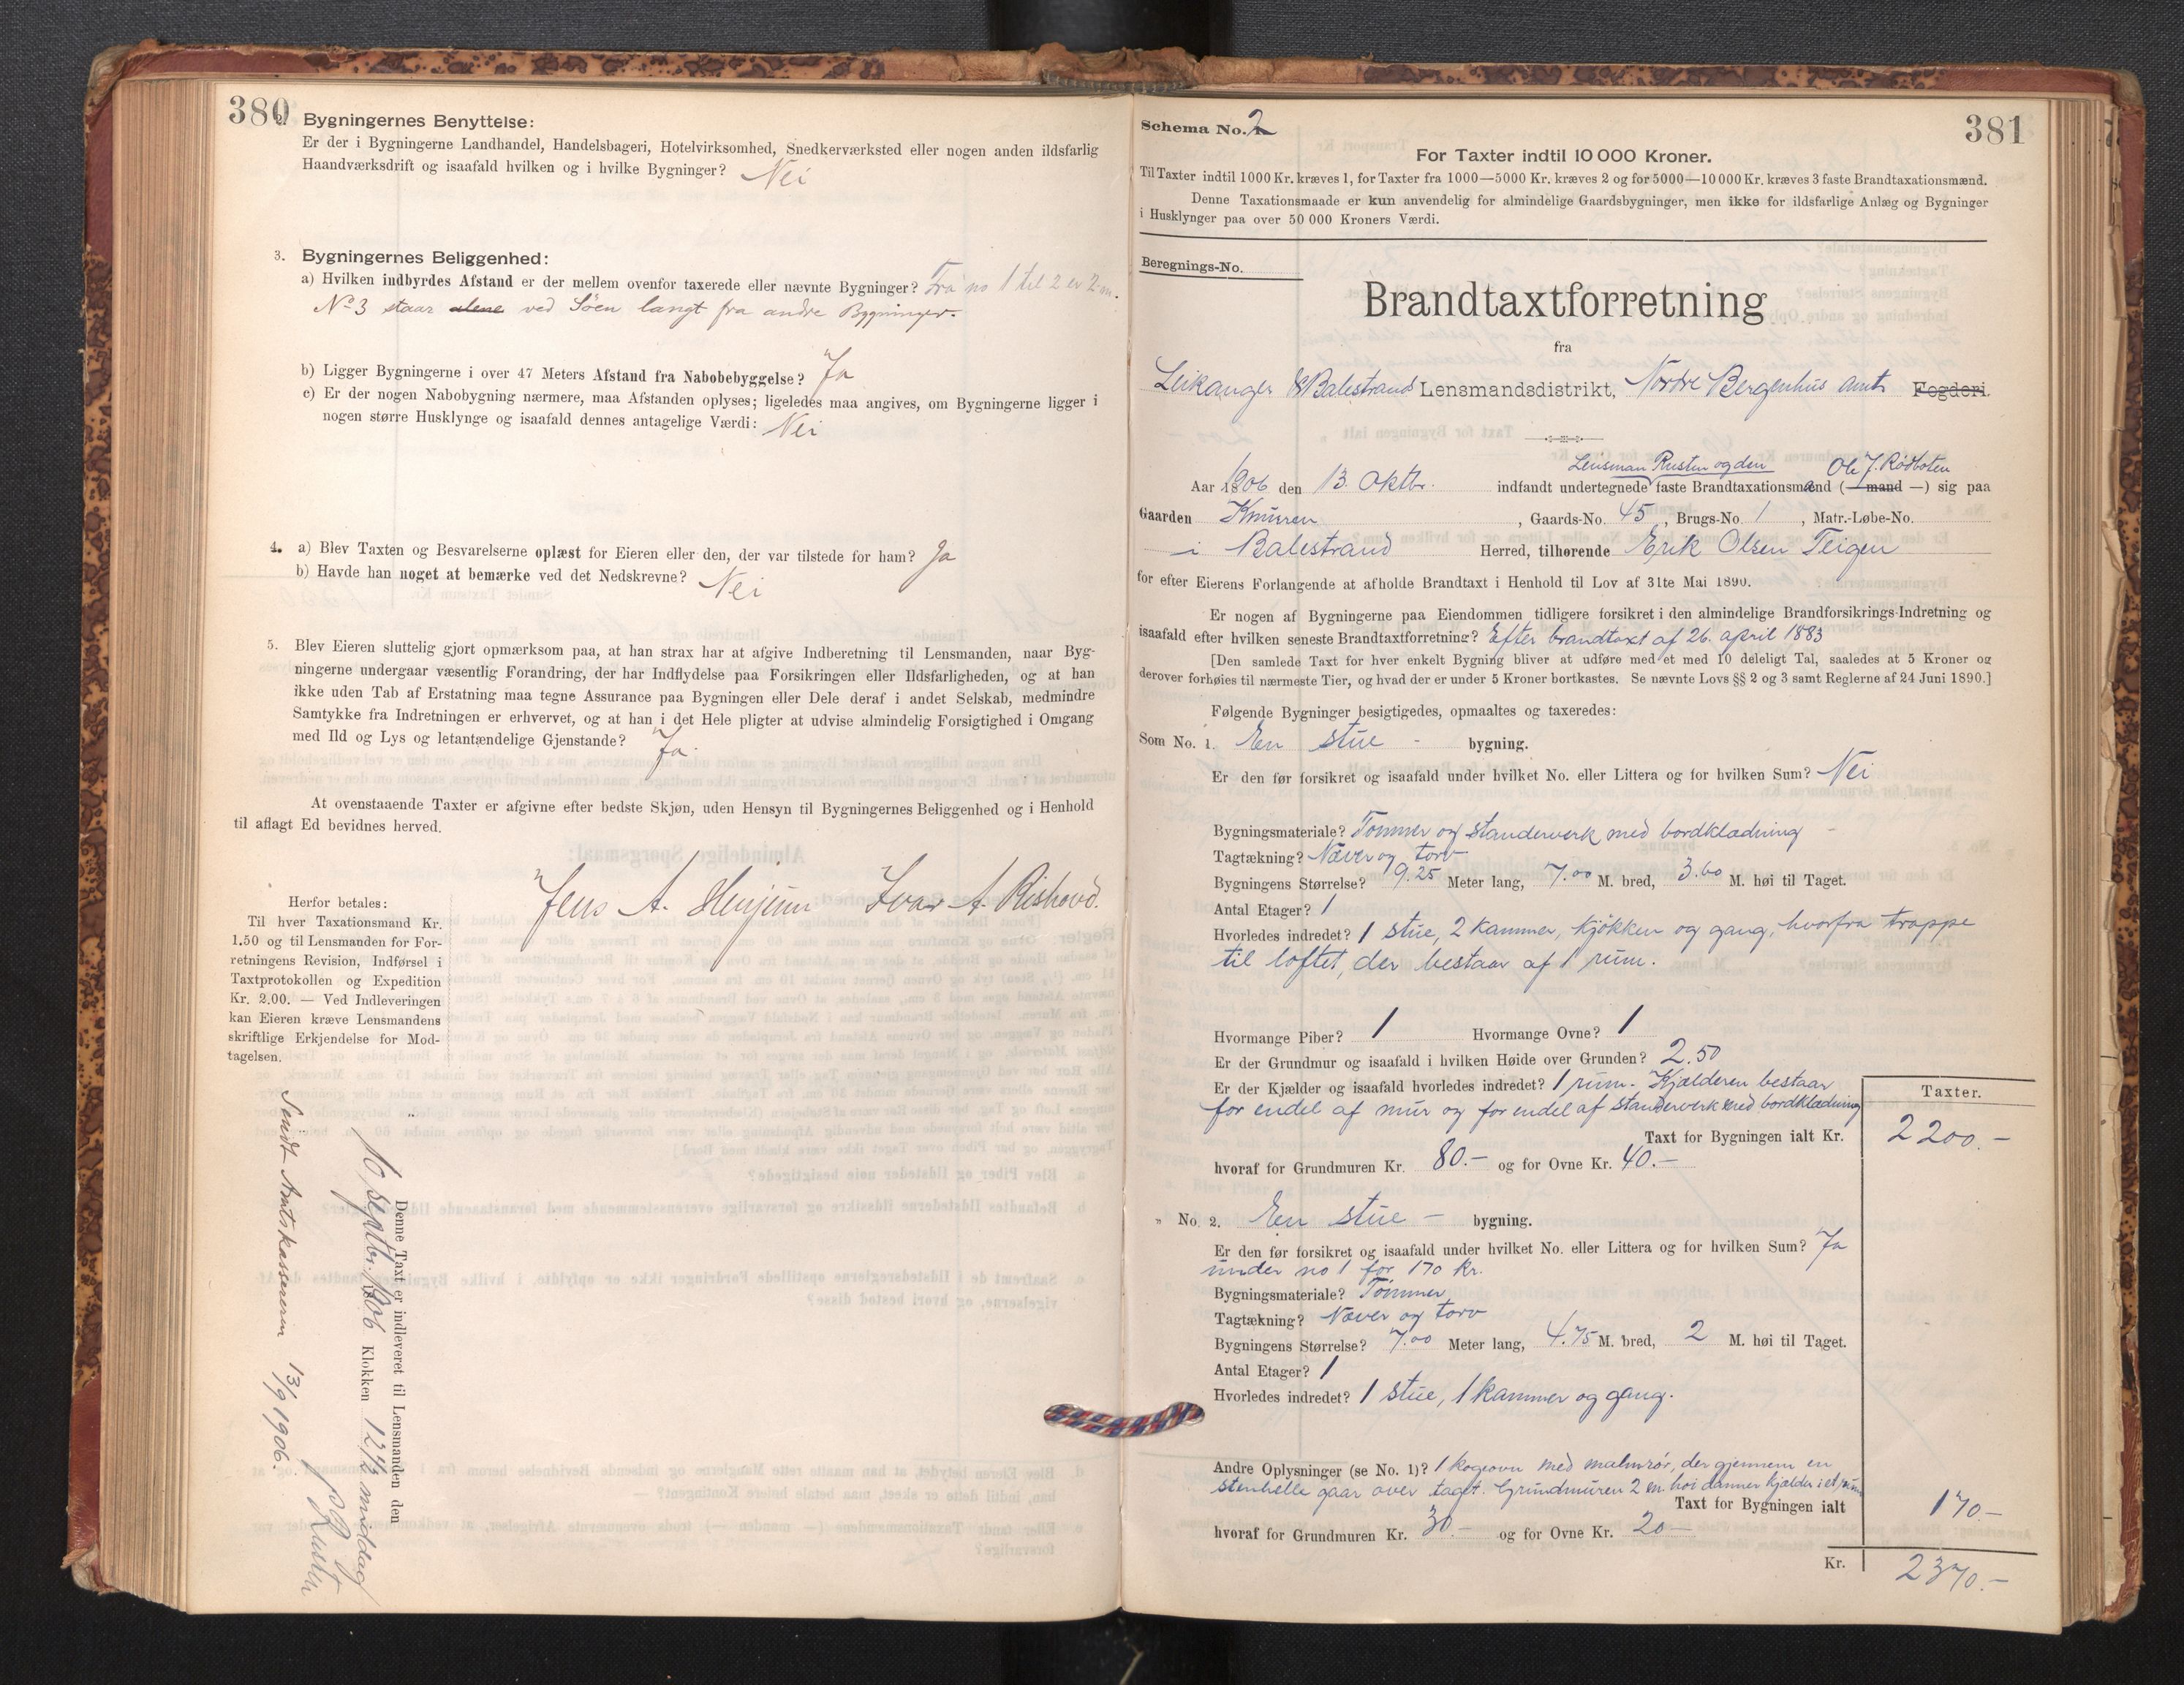 380
2. Bygningernes Benyttelse:
Er der i Bygningerne Landhandel, Handelsbageri, Hotelvirksomhed, Snedkerværksted eller nogen anden ildsfarlig
Haandværksdrift og isaafald hvilken og i hvilke Bygninger? Nei
3. Bygningernes Beliggenhed:
a) Hvilken indbyrdes Afstand er der mellem ovenfor taxerede eller nævnte Bygninger? Fra no 1 til 2 er 2 m.
No 3 staar alene ved Söen langt fra andre Bygninger.
b) Ligger Bygningerne i over 47 Meters Afstand fra Nabobebyggelse? Ja
c) Er der nogen Nabobygning nærmere, maa Afstanden oplyses; ligeledes maa angives, om Bygningerne ligger i
nogen større Husklynge og isaafald dennes antagelige Værdi: Nei
4. a) Blev Taxten og Besvarelserne oplæst for Eieren eller den, der var tilstede for ham? Ja
b) Havde han noget at bemærke ved det Nedskrevne? Nei
5. Blev Eieren sluttelig gjort opmærksom paa, at han strax har at afgive Indberetning til Lensmanden, naar Byg-
ningerne undergaar væsentlig Forandring, der har Indflydelse paa Forsikringen eller Ildsfarligheden, og at han
ikke uden Tab af Erstatning maa tegne Assurance paa Bygningen eller Dele deraf i andet Selskab, medmindre
Samtykke fra Indretningen er erhvervet, og at han i det Hele pligter at udvise almindelig Forsigtighed i Omgang
med Ild og Lys og letantændelige Gjenstande? Ja.
At ovenstaaende Taxter er afgivne efter bedste Skjøn, uden Hensyn til Bygningernes Beliggenhed og i Henhold
til aflagt Ed bevidnes herved.
Jens A. Henjum Ivar A. Rishovd.
Herfor betales:
Til hver Taxationsmand Kr.
1.50 og til Lensmanden for For-
retningens Revision, Indførsel i
Taxtprotokollen og Expedition
Kr. 2.00. — Ved Indleveringen
kan Eieren kræve Lensmandens
skriftlige Erkjendelse for Mod-
tagelsen.
Denne Taxt er indleveret til Lensmanden den
10 septbr. 1906 Klokken 12½ middag
R Rusten
Sendt Amtskassereren 13/9 1906.
381
Schema No. 2
For Taxter indtil 10 000 Kroner.
Til Taxter indtil 1000 Kr. kræves 1, for Taxter fra 1000—5000 Kr. kræves 2 og for 5000—10 000 Kr. kræves 3 faste Brandtaxationsmænd.
Denne Taxationsmaade er kun anvendelig for almindelige Gaardsbygninger, men ikke for ildsfarlige Anlæg og Bygninger
i Husklynger paa over 50 000 Kroners Værdi.
Beregnings-No.
Brandtaxtforretning
fra
Leikanger & Balestrand Lensmandsdistrikt, Nordre Bergenhus amt Fogderi.
Lensman Rusten og den Ole J. Rödboten
Aar 1906 den 13. Oktbr. indfandt undertegnede faste Brandtaxationsmænd (— mand —) sig paa
Gaarden Knüren, Gaards-No. 45, Brugs-No. 1, Matr.-Løbe-No.
i Balestrand Herred, tilhørende Erik Olsen Teigen
for efter Eierens Forlangende at afholde Brandtaxt i Henhold til Lov af 31te Mai 1890.
Er nogen af Bygningerne paa Eiendommen tidligere forsikret i den almindelige Brandforsikrings-Indretning og
isaafald efter hvilken seneste Brandtaxtforretning? Efter brandtaxt af 26. april 1883
[Den samlede Taxt for hver enkelt Bygning bliver at udføre med et med 10 deleligt Tal, saaledes at 5 Kroner og
derover forhøies til nærmeste Tier, og hvad der er under 5 Kroner bortkastes. Se nævnte Lovs §§ 2 og 3 samt Reglerne af 24 Juni 1890.]
Følgende Bygninger besigtigedes, opmaaltes og taxeredes:
Som No. 1. En stue - bygning.
Er den før forsikret og isaafald under hvilket No. eller Littera og for hvilken Sum? Nei
Bygningsmateriale? Tömmer og standerverk med bordklædning
Tagtækning? Næver og torv
Bygningens Størrelse? 9.25 Meter lang, 7.00 M. bred, 3.60 M. høi til Taget.
Antal Etager? 1
Hvorledes indredet? 1 stue, 2 kammer, kjökken og gang, hvorfra trappe
til loftet, der bestaar af 1 rum.
Hvormange Piber? 1 Hvormange Ovne? 1
Er der Grundmur og isaafald i hvilken Høide over Grunden? 2.50
Er der Kjælder og isaafald hvorledes indredet? 1 rum. Kjælderen bestaar
for endel af mur og for endel af standerverk med bordklædning
Taxter.
Taxt for Bygningen ialt Kr. 2200.-
hvoraf for Grundmuren Kr. 80.- og for Ovne Kr. 40.-
" No. 2. En stue - bygning.
Er den før forsikret og isaafald under hvilket No. eller Littera og for hvilken Sum? Ja
under no 1 for 170 kr.
Bygningsmateriale? Tömmer
Tagtækning? Næver og torv
Bygningens Størrelse? 7.00 Meter lang, 4.75 M. bred, 2 M. høi til Taget.
Antal Etager? 1
Hvorledes indredet? 1 stue, 1 kammer og gang.
Andre Oplysninger (se No. 1)? 1 kogeovn med malmrör, der gjennem en
stenhelle gaar over taget. Grundmuren 2 m. höi danner kjælder i et rum
Taxt for Bygningen ialt 170.-
hvoraf for Grundmuren Kr. 30.- og for Ovne Kr. 20-
Kr. 2370.-